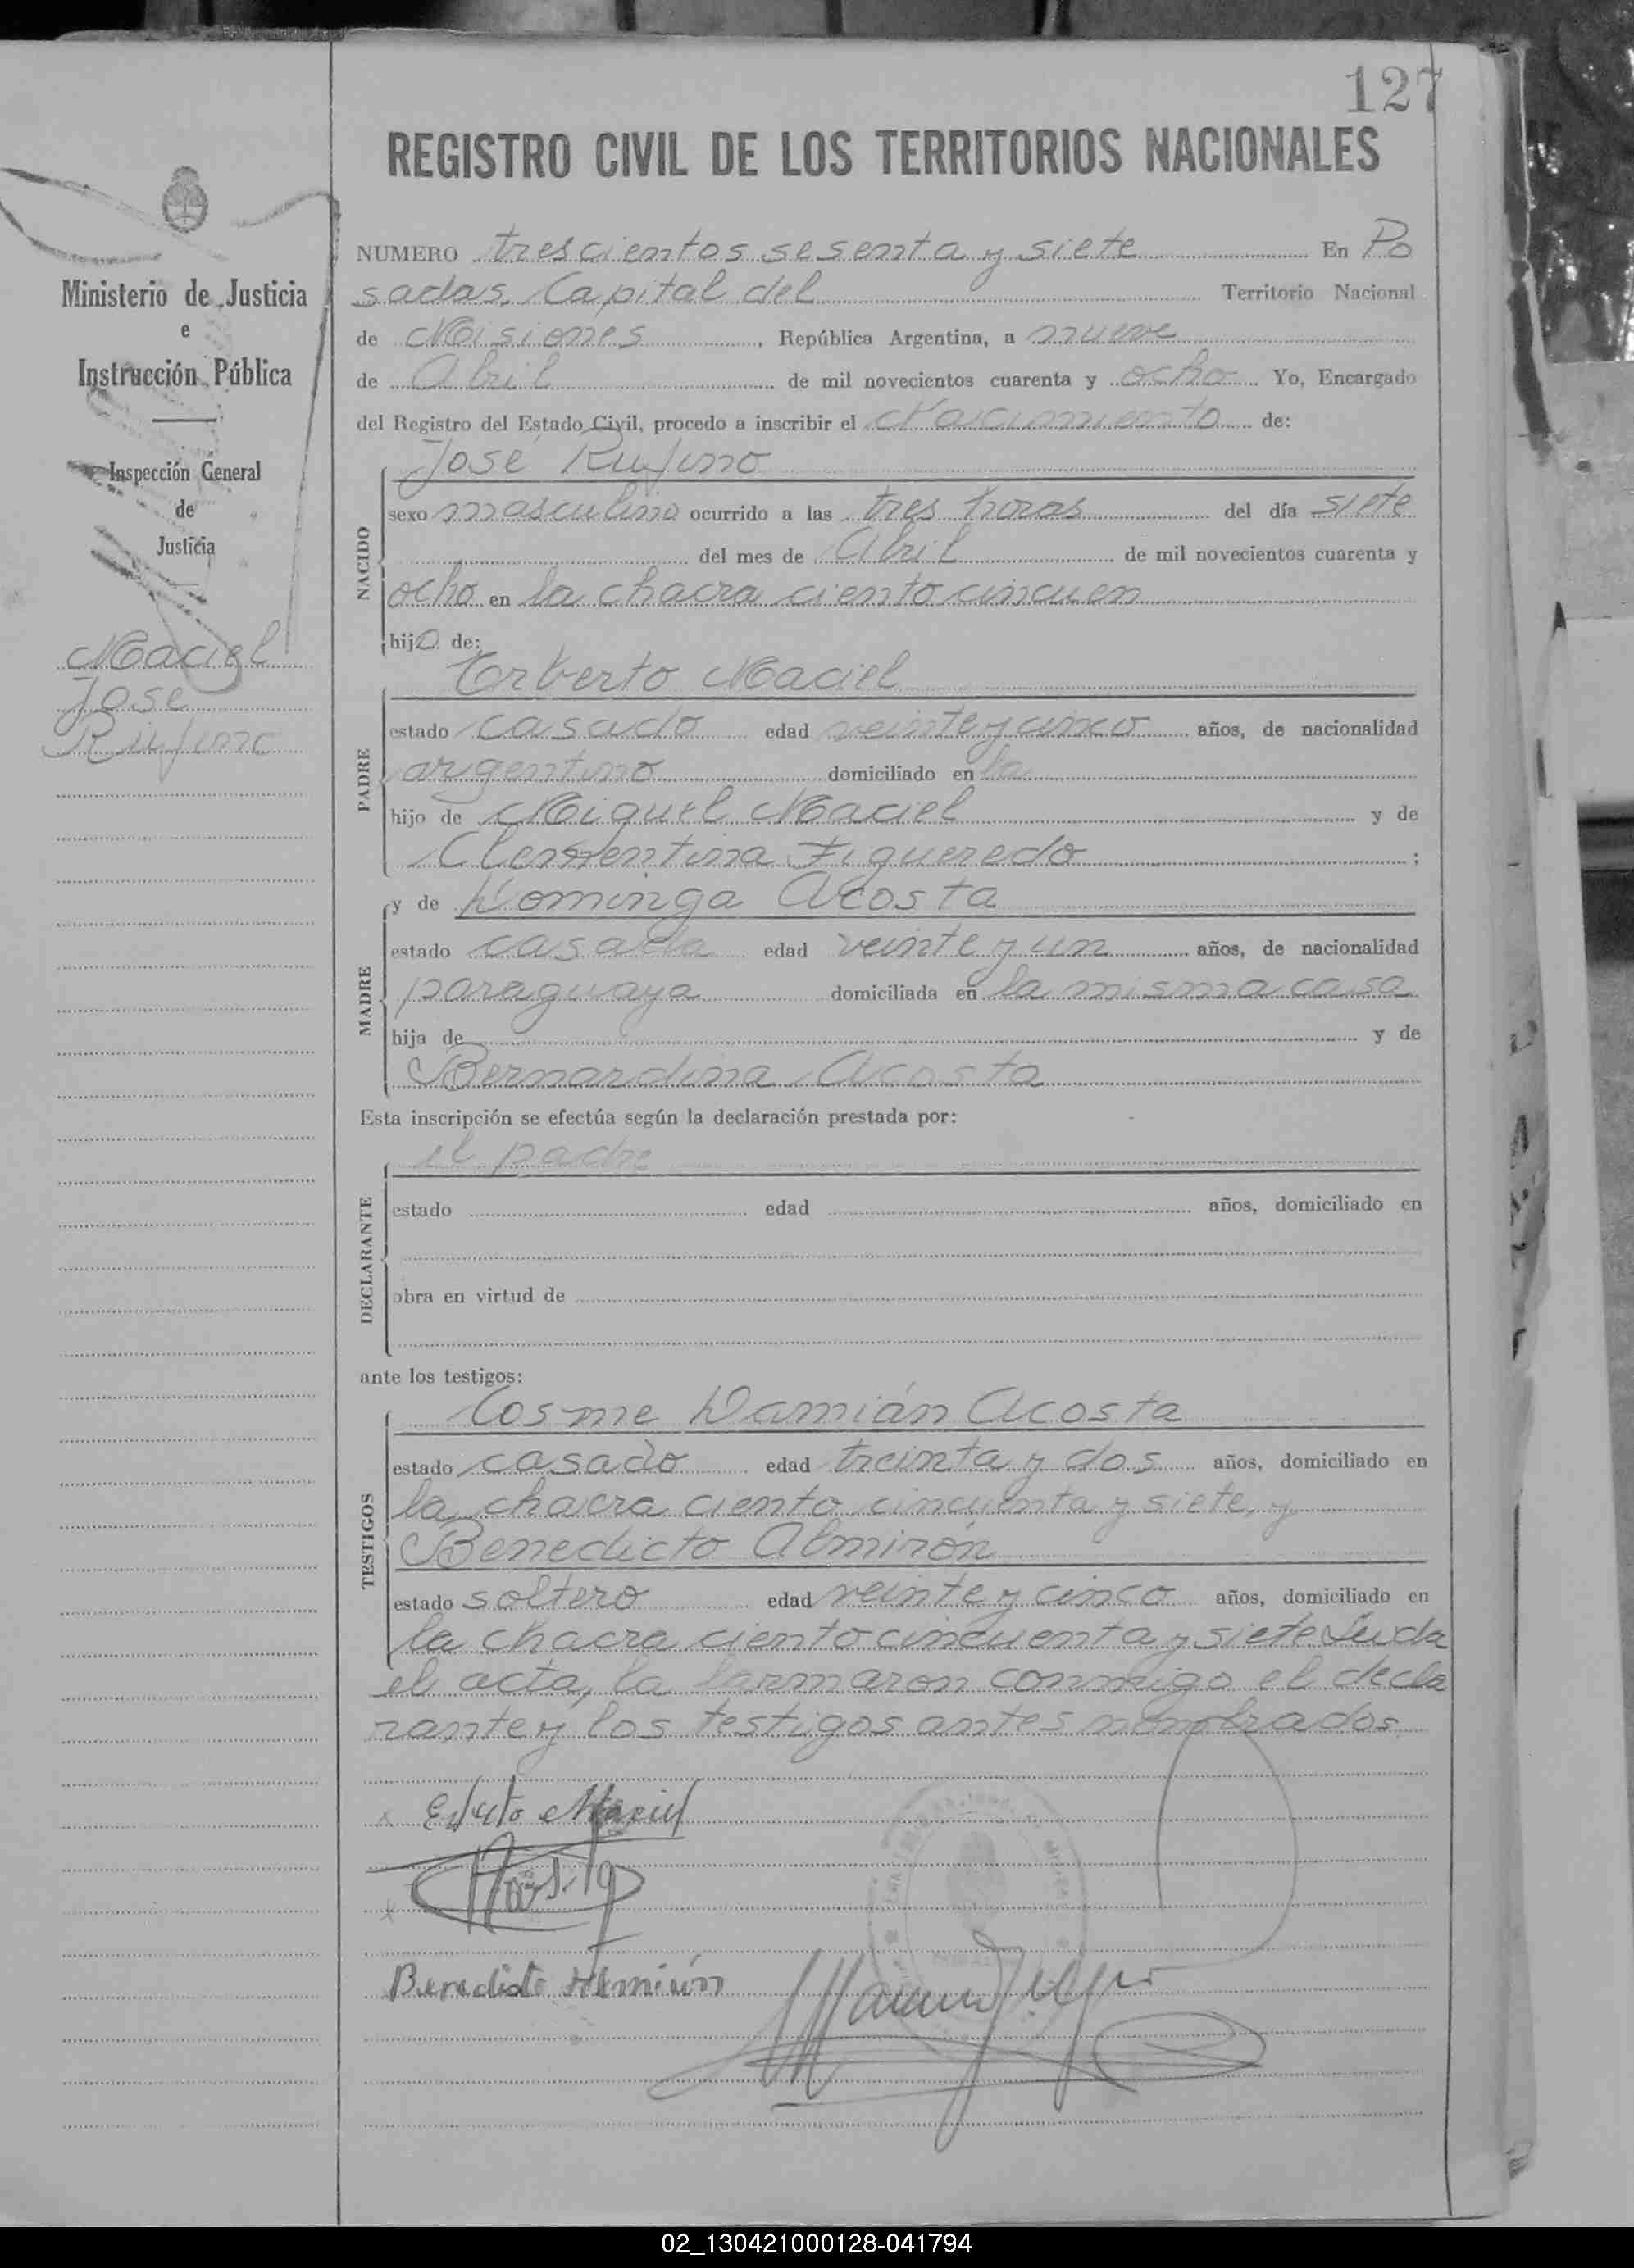 127
REGISTRO CIVIL DE LOS TERRITORIOS NACIONALES
Ministerio de Justicia
e
Instrucción Pública
Inspección General
de
Justicia
Maciel
José
Rufino
NUMERO trescientos sesenta y siete En Po
sadas, Capital del Territorio Nacional
de Misiones, República Argentina, a nueve
de Abril de mil novecientos cuarenta y ocho Yo, Encargado
del Registro del Estado Civil, procedo a inscribir el Nacimiento de:
NACIDO
José Rufino
sexo masculino ocurrido a las tres horas del día siete
del mes de Abril de mil novecientos cuarenta y
ocho en la chacra ciento cincuen
hijo de:
PADRE
Erberto Maciel
estado casado edad veinte y cinco años, de nacionalidad
argentino domiciliado en la
hijo de Miguel Maciel y de
Clementina Figueredo ;
MADRE
y de Dominga Acosta
estado casada edad veinte y un años, de nacionalidad
paraguaya domiciliada en la misma casa
hija de y de
Bernardina Acosta
Esta inscripción se efectúa según la declaración prestada por:
DECLARANTE
el padre
estado edad años, domiciliado en
obra en virtud de
ante los testigos:
TESTIGOS
Cosme Damián Acosta
estado casado edad treinta y dos años, domiciliado en
la chacra ciento cincuenta y siete, y
Benedicto Almirón
estado soltero edad veinte y cinco años, domiciliado en
la chacra ciento cincuenta y siete. Leida
el acta, la conmigo el decla
rante y los testigos antes nombrados.
Maciel
Benedicto Almirón
02_130421000128-041794